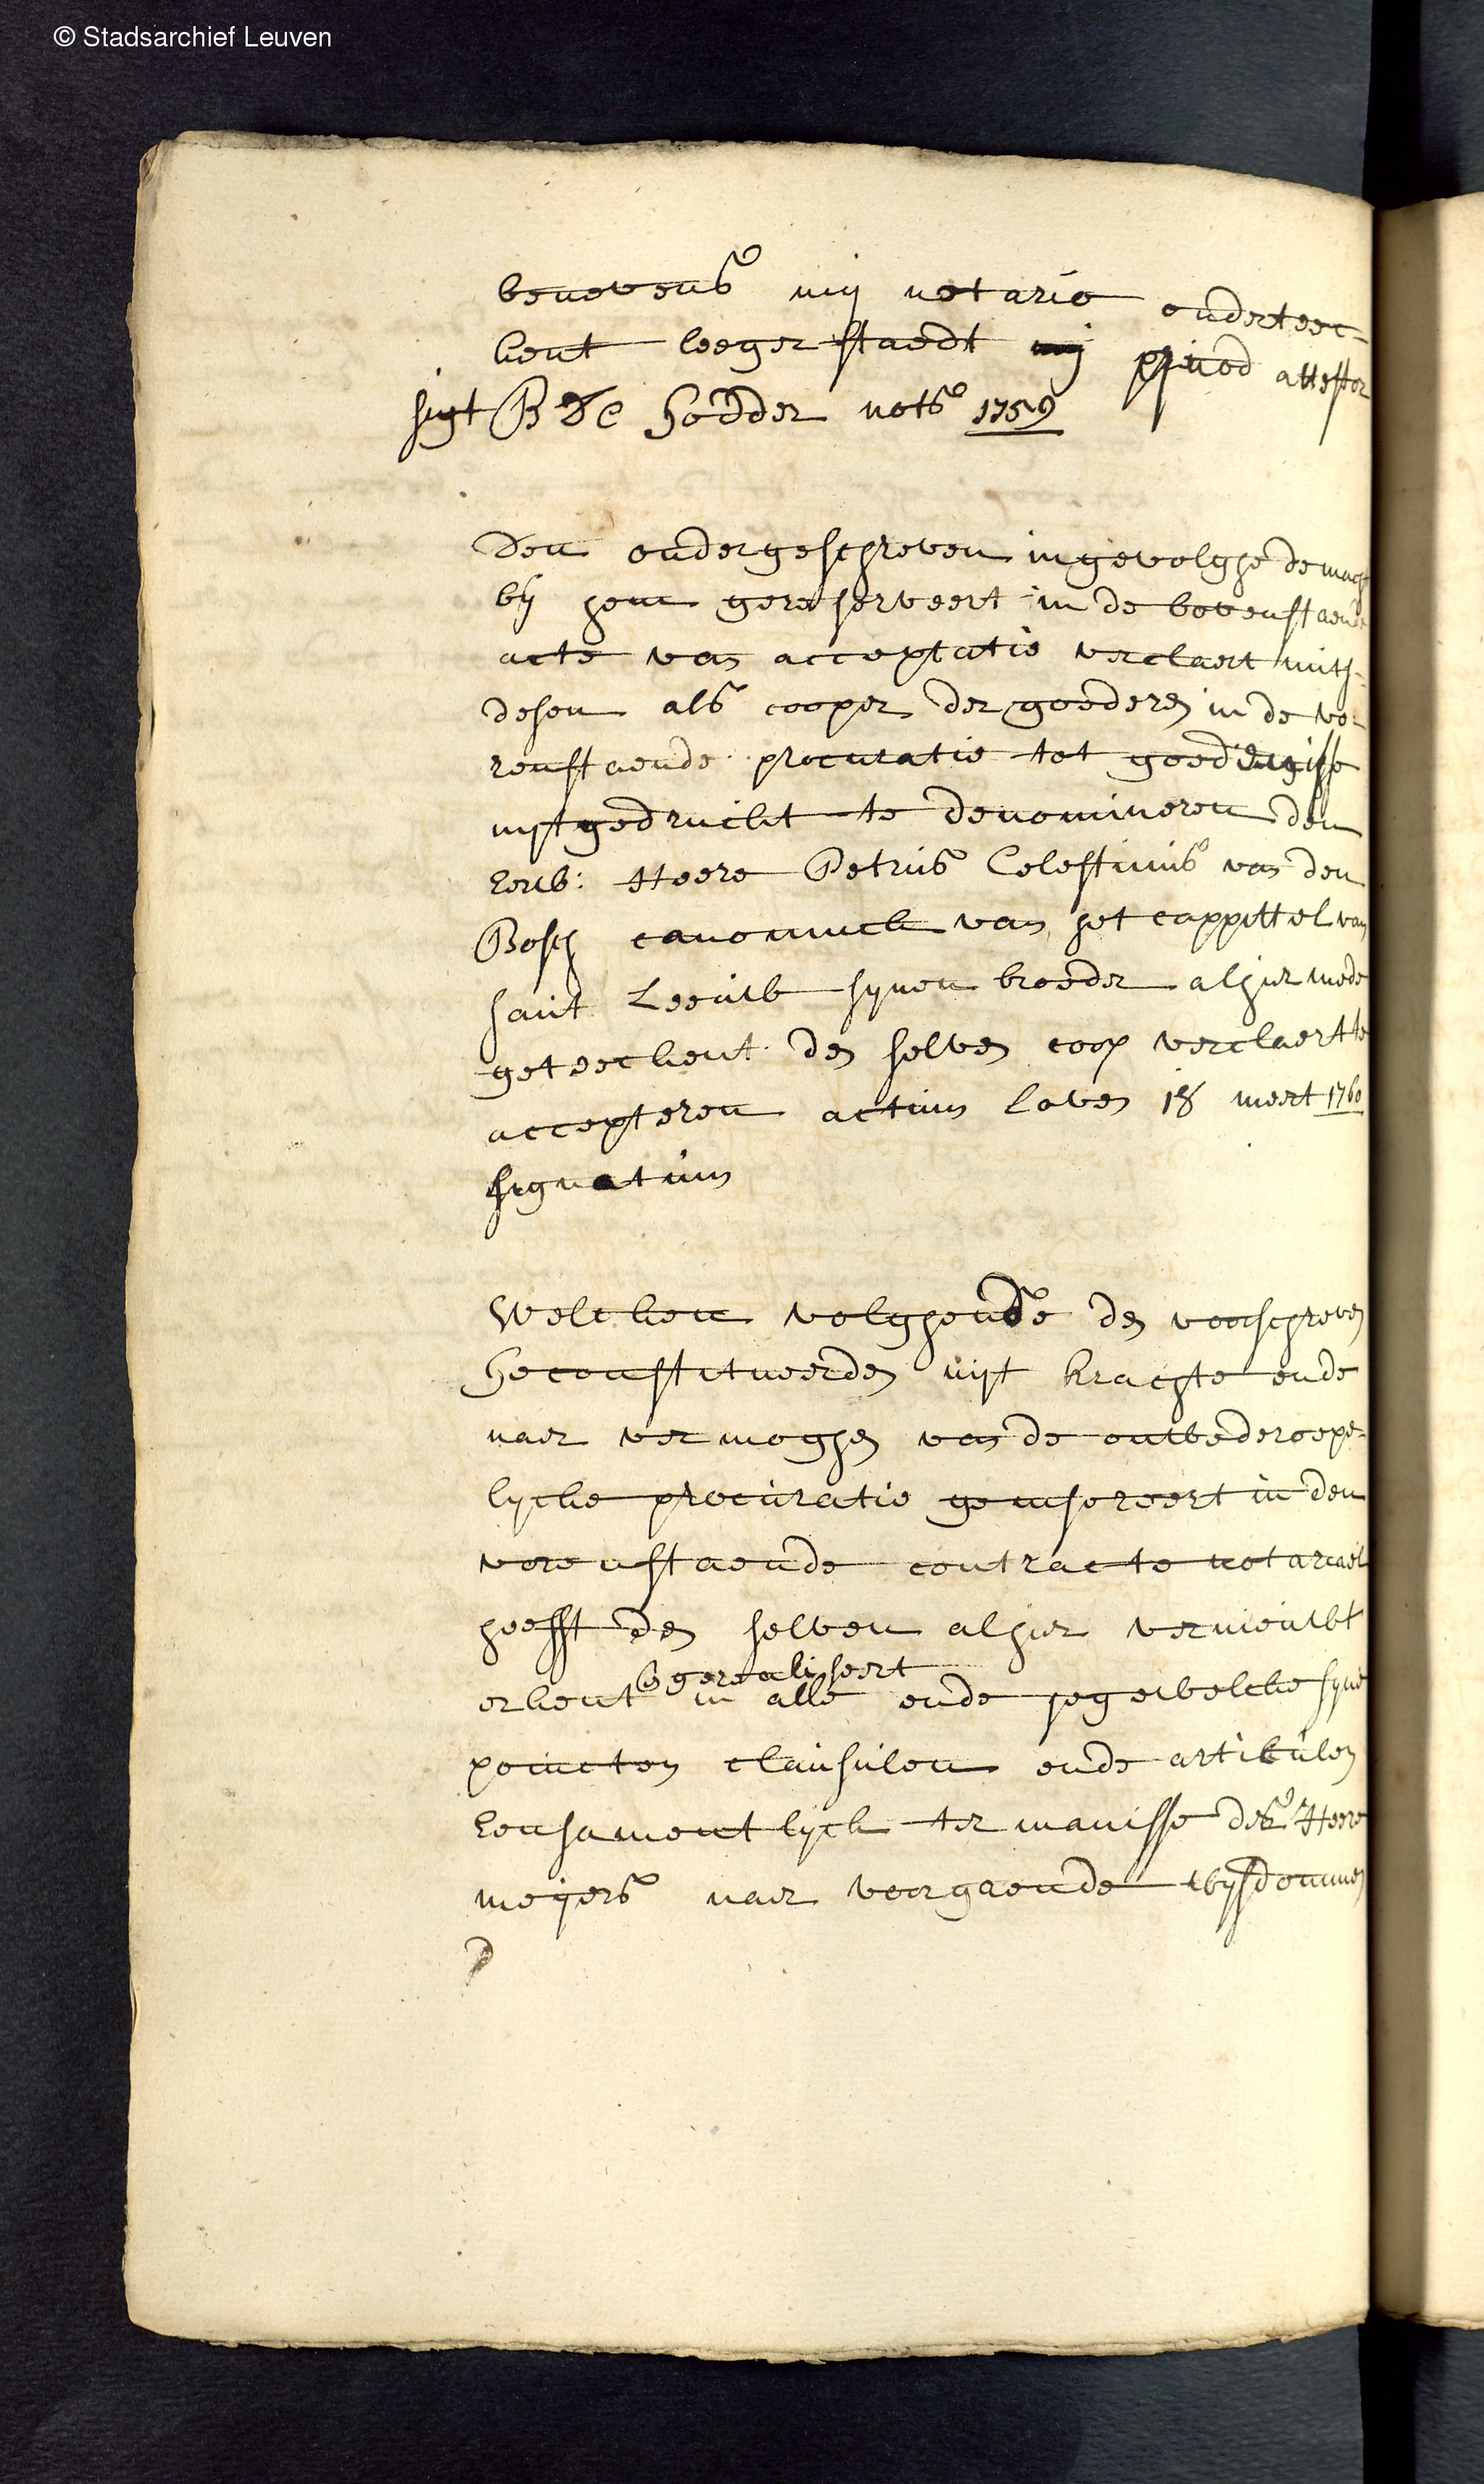 © Stadsarchief Leuven
benevens mij notario onderteec-
kent leeger staedt quod attestor
sigt B De Hodder nots 1759
Den ondergeschreven ingevolghe de macht
bij hem gereserveert in de bovenstaende
acte van acceptatie verclaert mits-
desen als cooper der goederen in de vo-
renstaende procuratie tot goedenisse
uijtgedruckt te denomineren den
Eerw: Heere Petrus Celestinus van den
Bosch canoninck van het cappittel van
sint Leeuw synen broeder alhier mede
geteeckent den selven coop verclaert te
accepteren actum loven 18 mert 1760
signatum
Welcken volghende den voorschreven
geconstitueerden uijt krachte ende
naer vermoghen van de onwederoepe-
lycke procuratie geinsereert in den
vorenstaende contracte notariael
heefft den selven alhier vernieuwt
gerealiseert
erkent in alle ende iegewelcke syne
poincten clausulen ende articulen
Consamentlyck ter manisse des Heere
meijers naer voorgaende wysdomme